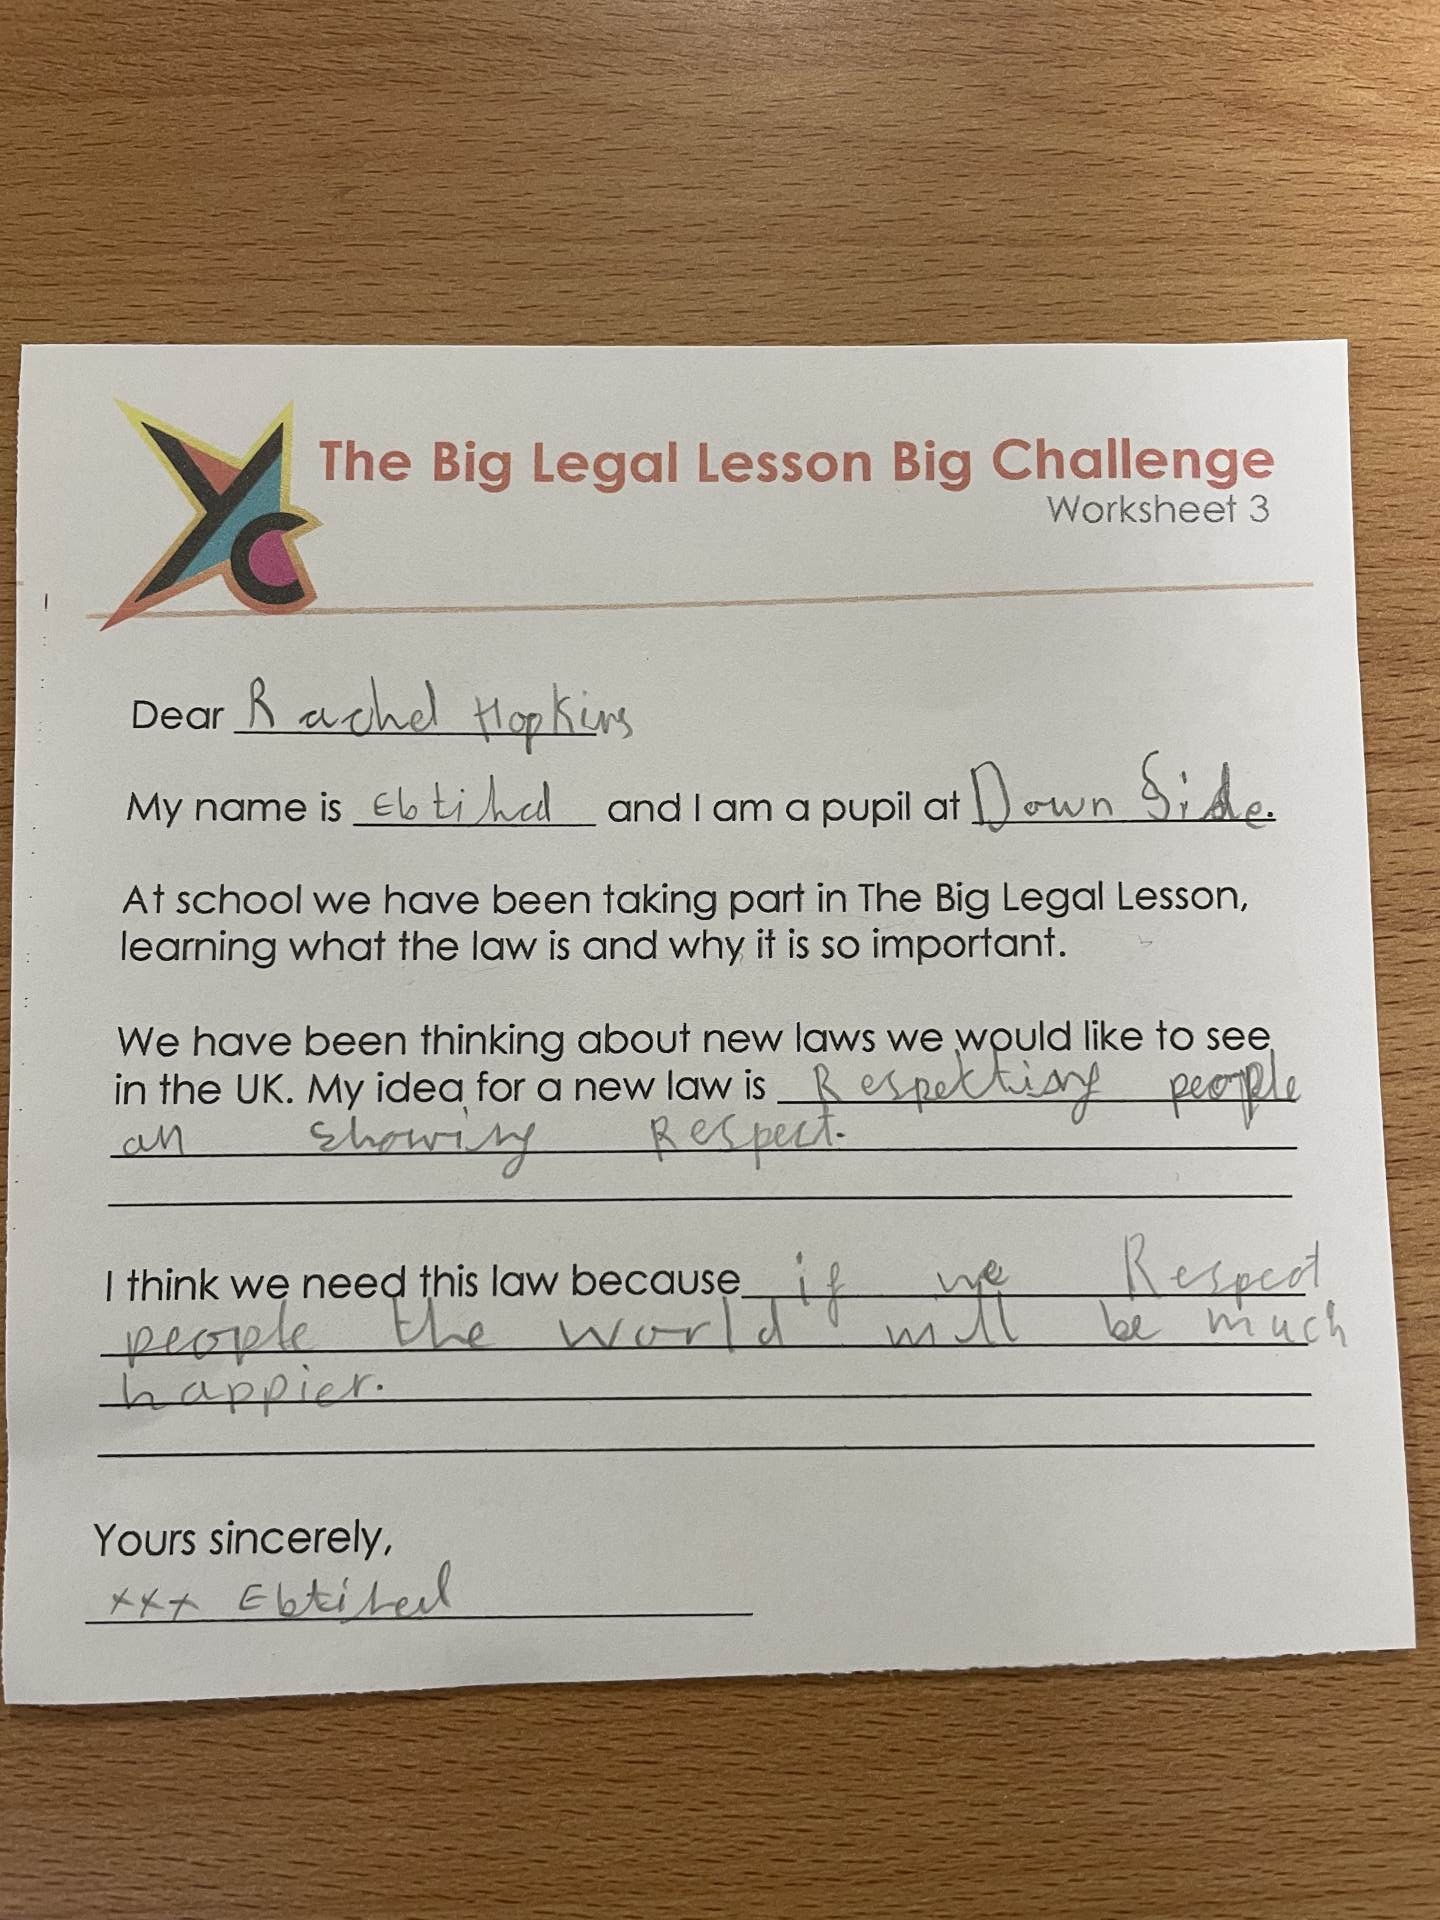 YC
The Big Legal Lesson Big Challenge
Worksheet 3
Dear Rachel Hopkins
My name is Ebtihal and I am a pupil at Down Side.
At school we have been taking part in The Big Legal Lesson,
learning what the law is and why it is so important.
We have been thinking about new laws we would like to see
in the UK. My idea for a new law is Respekting people
an showing Respect.
I think we need this law because if we Respect
people the world will be much
happier.
Yours sincerely,
xxx Ebtihal